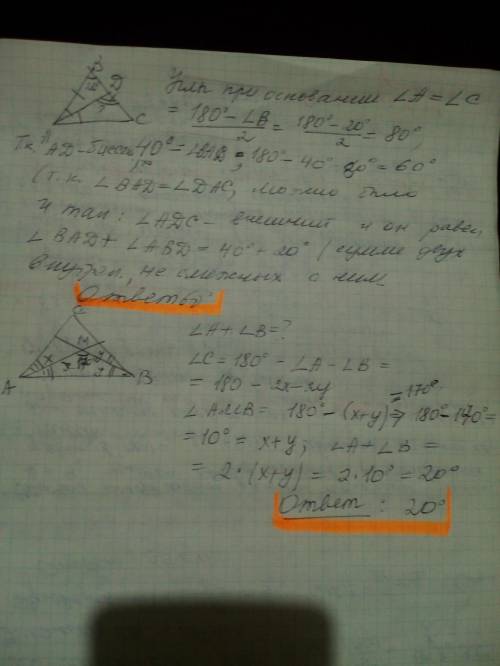 B
D
C
A
Углы при основании ∠A = ∠C
= (180° - ∠B)/2 = (180° - 20°)/2 = 80°,
Т.к. AD - бис 40° = ∠BAD; 180° - 40° - 80° = 60°
(т.к. ∠BAD = ∠DAC, можно было
и так: ∠ADC - внешний и он равен
∠BAD + ∠ABD = 40° + 20° / сумме двух
внутрен, не смежных с ним
Ответ 60°
C
M
x
x
y
y
A
B
∠A + ∠B = ?
∠C = 180° - ∠A - ∠B =
= 180 - 2x - 2y
= 170°
∠AMB = 180° - (x+y) ⇒ 180° - 170° =
= 10° = x + y; ∠A + ∠B =
= 2 · (x+y) = 2 · 10° = 20°
Ответ : 20°